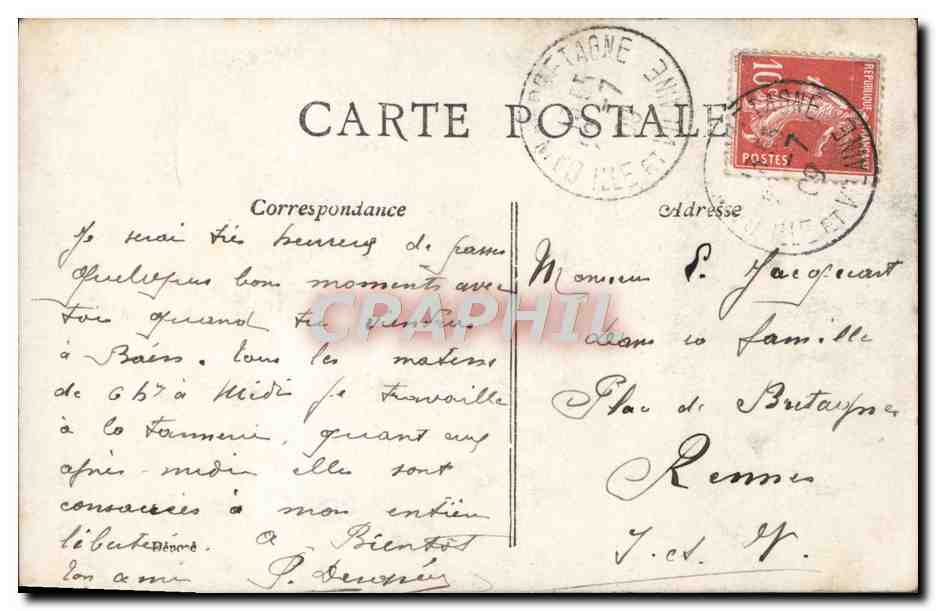 CARTE POSTALE
BRETAGNE
ILLE ET VILAINE
10
REPUBLIQUE
POSTES
ILLE ET VILAINE
7
09
Correspondance
Je serai très heureux de passer
quelques bons moments avec
toi quand tu viendras
à Baën. tous les matins
de 6 h à Midi je travaille
à la tannerie, quant aux
après-midi elles sont
consacrées à mon entière
liberté. a Bientôt
ton ami P.
Déposé
Adresse
Monsieur P. Jacquart
dans sa famille
Place de Bretagne
Rennes
I. et V.
CPAPHIL